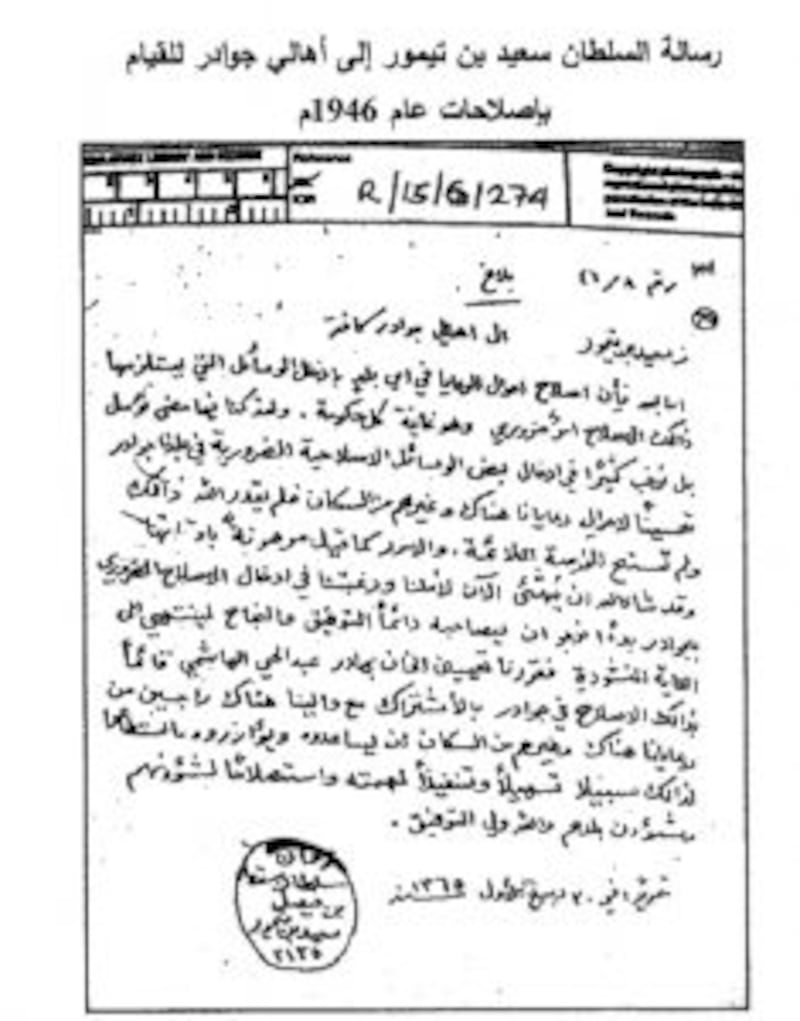 رسالة السلطان سعيد بن تيمور إلى أهالي جوادر للقيام
بإصلاحات عام 1946م
Reference
IOR
R/15/6/274
Copyright photograph
رقم ٨ / ٤٦
بلاغ
من سعيد بن تيمور
الى اهالي جوادر كافة
اما بعد فأن اصلاح احوال الرعايا في اي بلد بادخال الوسائل التي يستلزمها
ذالك الاصلاح امرٌ ضروري وهو غاية كل حكومة . ولقد كنا فيما مضى نؤمل
بل نرغب كثيرًا في ادخال بعض الوسائل الاصلاحية الضرورية في بلدنا جوادر
تحسيناً لاحوال رعايانا هناك وغيرهم من السكان فلم يقدر الله ذالك
ولم تسنح الفرصة الملائمة . والامور كما قيل مرهونة باوقاتها
وقد شاء الله ان يهيّئ الآن لأملنا ورغبتنا في ادخال الاصلاح الضروري
بجوادر بدءًا نرجو ان يصاحبه دائماً التوفيق والنجاح لينتهي الى
الغاية المنشودة فقررنا تعيين الخان بهادر عبدالحي الهاشمي قائماً
بذالك الاصلاح في جوادر بالأشتراك مع والينا هناك راجين من
رعايانا هناك وغيرهم من السكان ان يساعدوه ويؤازروه ما استطاعوا
لذالك سبيلا تسهيلاً وتنفيذاً لمهمته واستصلاحًا لشؤونهم
وشؤون بلدهم والله ولي التوفيق .
تحريرًا في ٣٠ ربيع الأول ١٣٦٥
سلطان مسقط
بن فيصل
سعيد بن تيمور